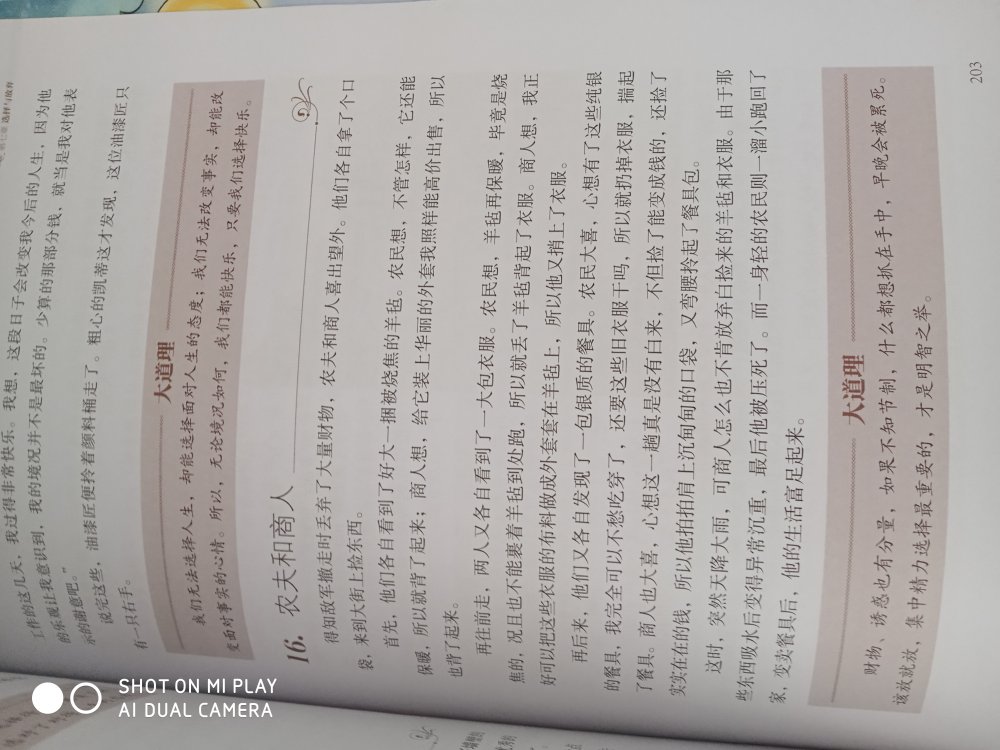 选择与放弃
工作的这几天，我过得非常快乐。我想，这段日子会改变我今后的人生，因为他
的乐观让我意识到，我的境况并不是最坏的。少算的那部分钱，就当是我对他表
示的谢意吧。”
说完这些，油漆匠便拎着颜料桶走了。粗心的凯蒂这才发现，这位油漆匠只
有一只右手。
大道理
我们无法选择人生，却能选择面对人生的态度；我们无法改变事实，却能改
变面对事实的心情。所以，无论境况如何，我们都能快乐，只要我们选择快乐。
16. 农夫和商人
得知敌军撤走时丢弃了大量财物，农夫和商人喜出望外。他们各自拿了个口
袋，来到大街上捡东西。
首先，他们各自看到了好大一捆被烧焦的羊毡。农民想，不管怎样，它还能
保暖，所以就背了起来；商人想，给它装上华丽的外套我照样能高价出售，所以
也背了起来。
再往前走，两人又各自看到了一大包衣服。农民想，羊毡再保暖，毕竟是烧
焦的，况且也不能裹着羊毡到处跑，所以就丢了羊毡背起了衣服。商人想，我正
好可以把这些衣服的布料做成外套套在羊毡上，所以他又捎上了衣服。
再后来，他们又各自发现了一包银质的餐具。农民大喜，心想有了这些纯银
的餐具，我完全可以不愁吃穿了，还要这些旧衣服干吗，所以就扔掉衣服，揣起
了餐具。商人也大喜，心想这一趟真是没有白来，不但捡了能变成钱的，还捡了
实实在在的钱，所以他拍拍肩上沉甸甸的口袋，又弯腰拎起了餐具包。
这时，突然天降大雨，可商人怎么也不肯放弃白捡来的羊毡和衣服。由于那
些东西吸水后变得异常沉重，最后他被压死了。而一身轻的农民则一溜小跑回了
家，变卖餐具后，他的生活富足起来。
大道理
财物、诱惑也有分量，如果不知节制，什么都想抓在手中，早晚会被累死。
该放就放，集中精力选择最重要的，才是明智之举。
203
SHOT ON MI PLAY
AI DUAL CAMERA